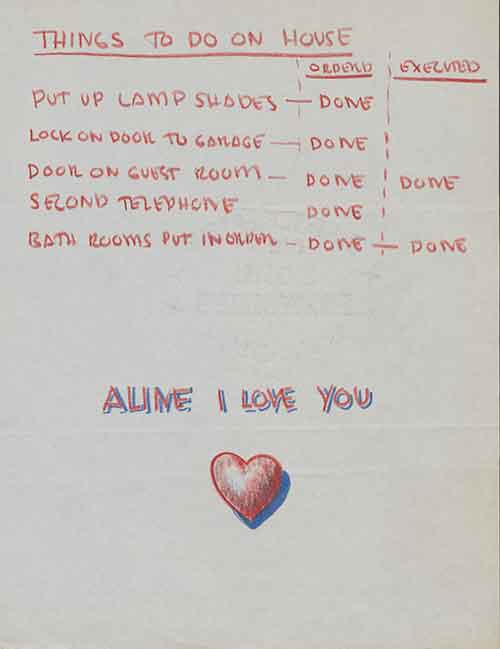 THINGS TO DO ON HOUSE
ORDERD EXECUTED
PUT UP LAMP SHADES — DONE
LOCK ON DOOR TO GARAGE — DONE
DOOR ON GUEST ROOM — DONE DONE
SECOND TELEPHONE DONE
BATH ROOMS PUT IN ORDER — DONE — DONE
ALINE I LOVE YOU